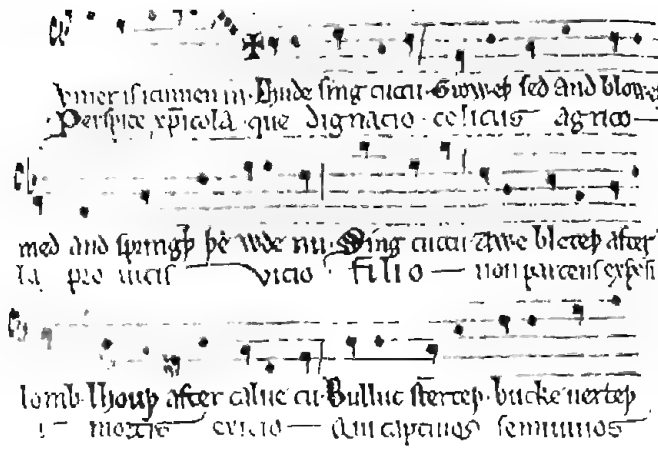 umer is icumen in · Lhude sing cuccu · Groweþ sed and blowe
Perspice xp̄icola · que dignacio · celicus agrico
med and springþ þe wde nu · Sing cuccu Awe bleteþ after
la pro uitis vicio · filio non parcens exposi
lomb · lhouþ after calue cu · Bulluc sterteþ · bucke uerteþ
mortis exicio Qui captiuos semiuiuos